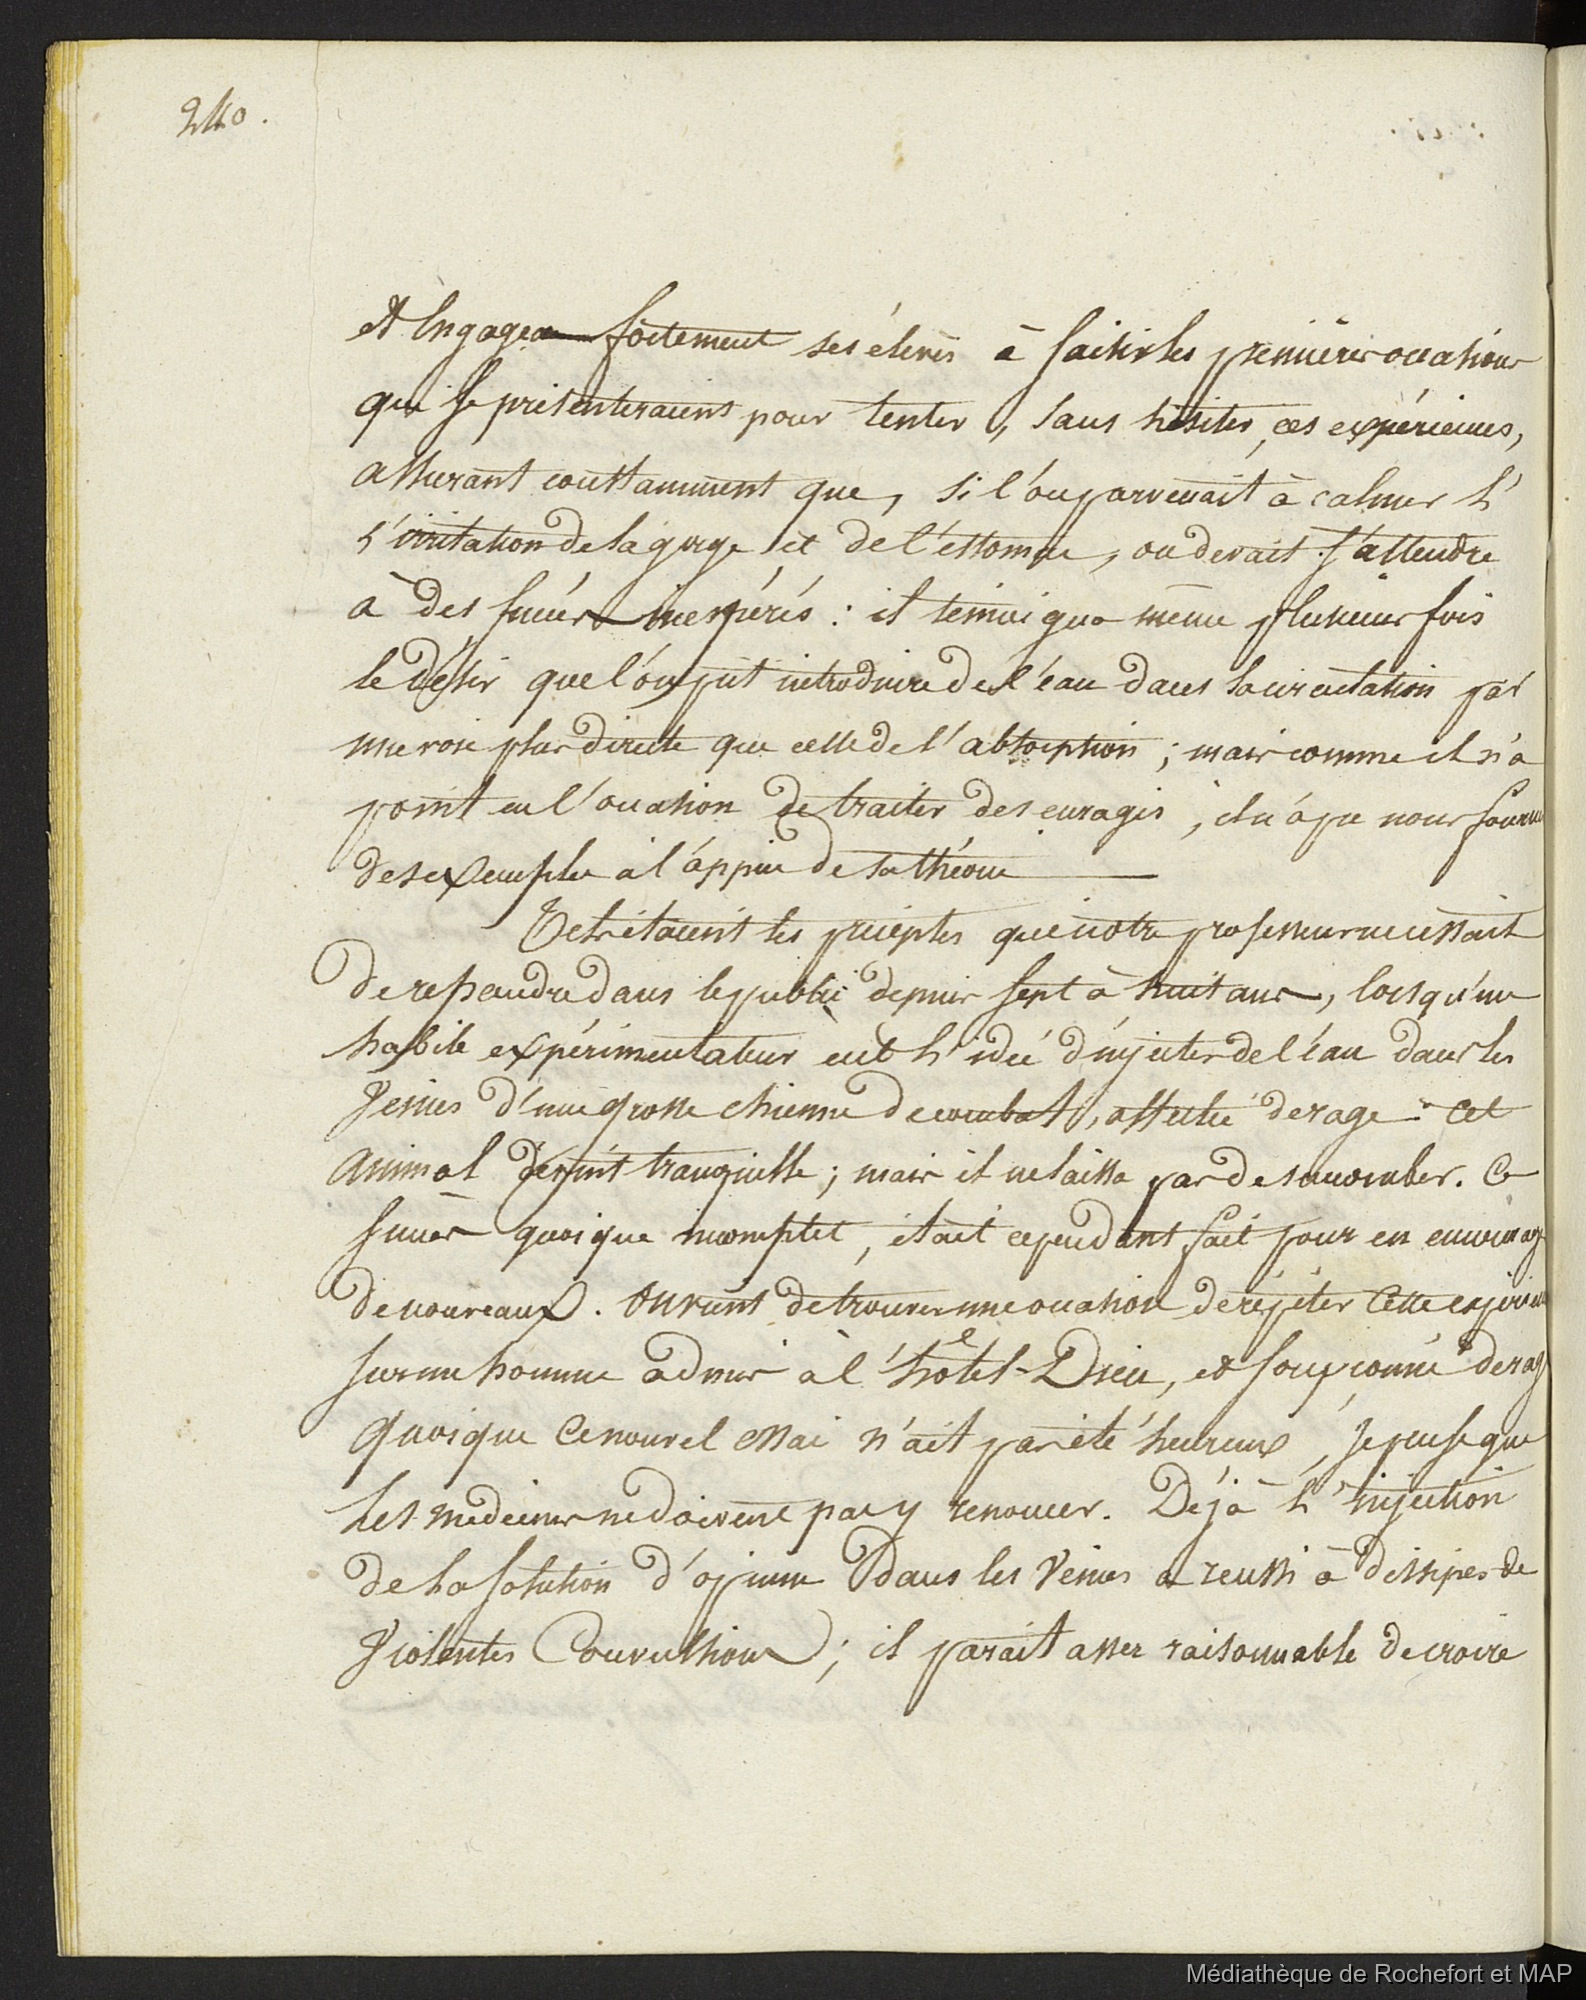 240.
et engagea fortement ses élèves à saisir les premières occasions
qui se présenteraient pour tenter, sans hésiter, ces expériences,
assurant constamment que, si l'on parvenait à calmer l'
l'irritation de la gorge et de l'estomac, on devait s'attendre
à des succès inespérés : il témoigna même plusieurs fois
le désir que l'on pût introduire de l'eau dans la circulation par
une voie plus directe que celle de l'absorption ; mais comme il n'a
point eu l'occasion de traiter des enragés, il n'a pu nous fournir
des exemples à l'appui de sa théorie
Tels étaient les préceptes que notre professeur ne cessait
de répandre dans le public depuis sept à huit ans, lorsqu'un
habile expérimentateur eut l'idée d'injecter de l'eau dans les
Veines d'une grosse chienne de combat, affectée de rage. Cet
animal devint tranquille ; mais il ne laissa pas de succomber. Ce
succès quoique incomplet, était cependant fait pour en encourag
de nouveaux. On vient de trouver une occasion de répéter cette expérien
sur un homme admis à l'hôtel-Dieu, et soupçonné de rag
quoique ce nouvel essai n'ait pas été heureux, je pense que
les médecins ne doivent pas y renoncer. Déjà l'injection
de la solution d'opium dans les Veines a réussi à dissiper de
Violentes Convulsions ; il paraît assez raisonnable de croire
Médiathèque de Rochefort et MAP